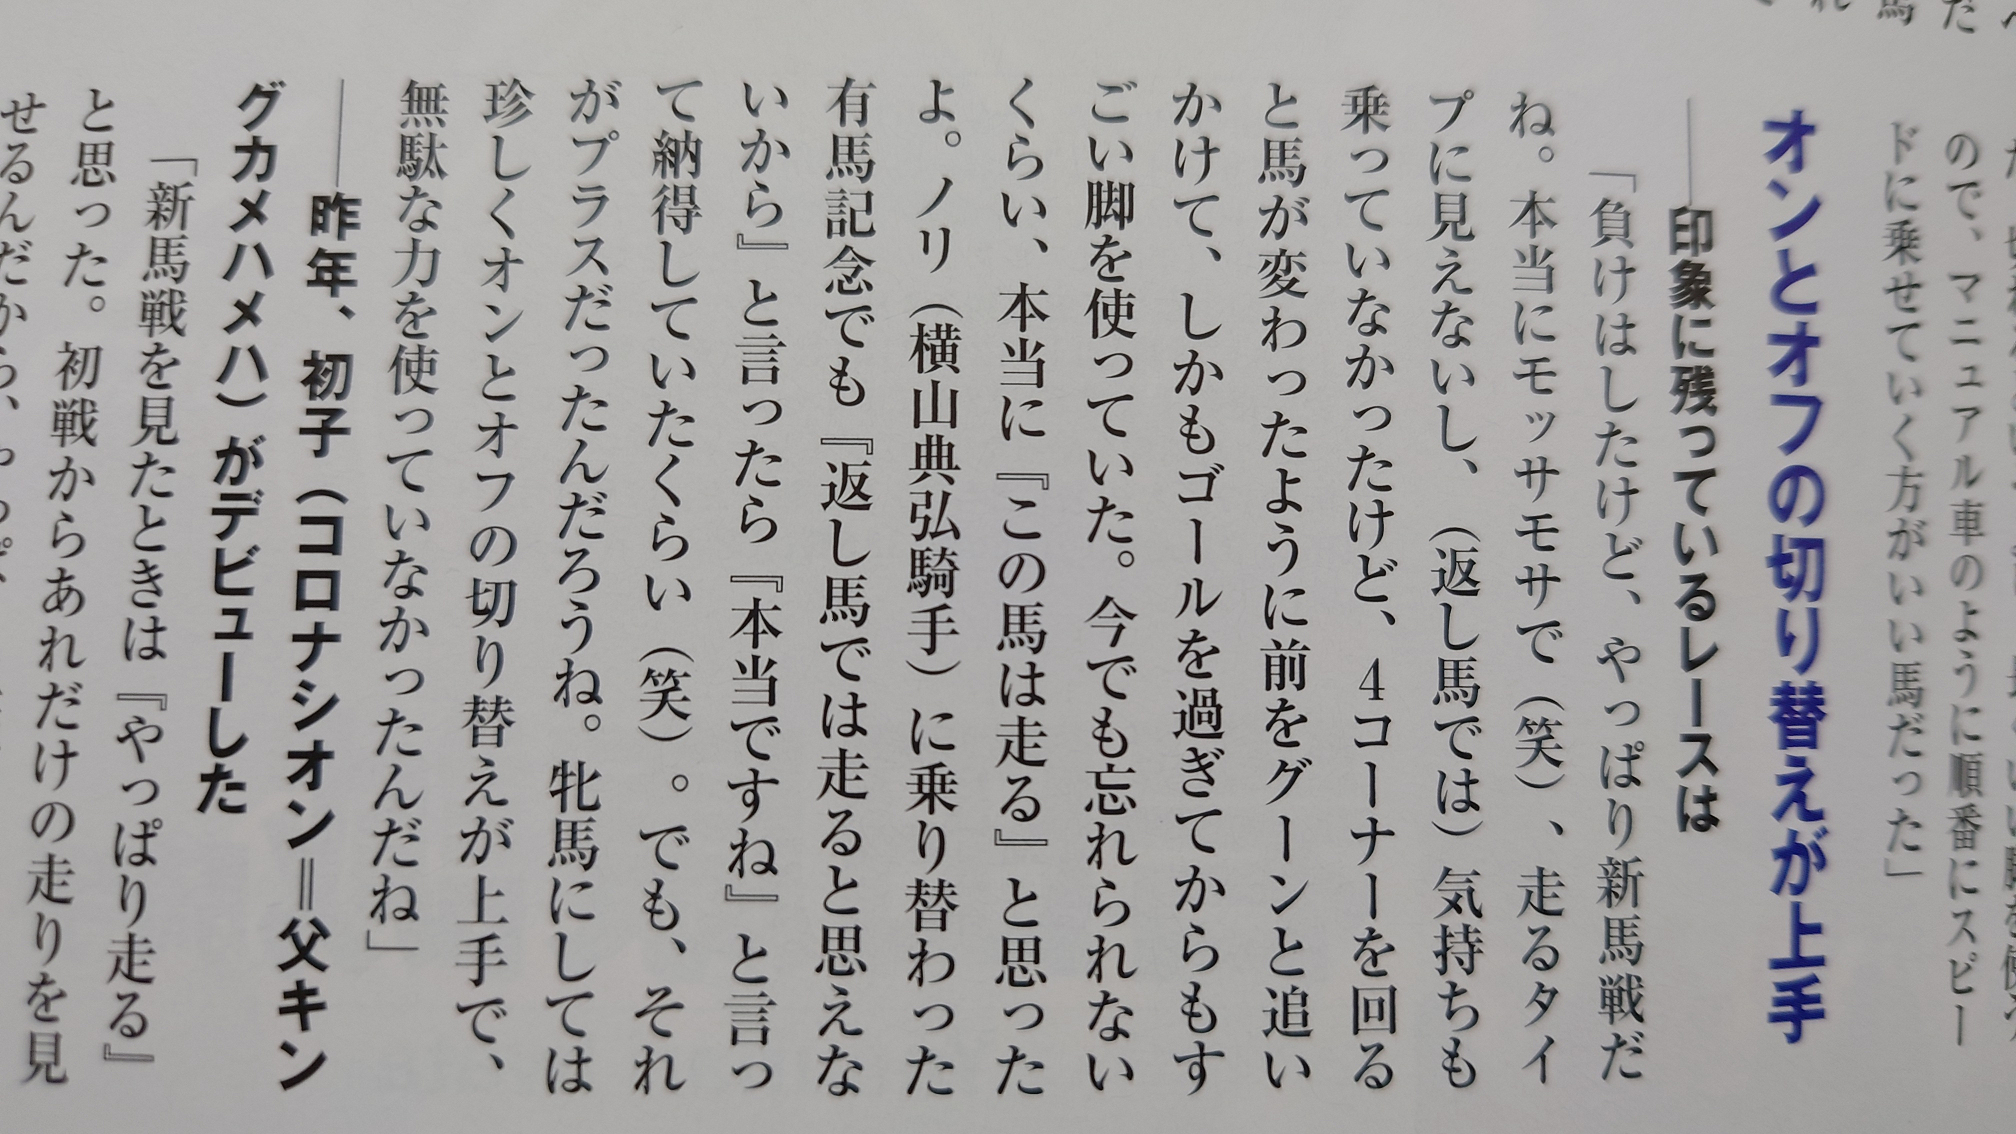 ので、マニュアル車のように順番にスピー
ドに乗せていく方がいい馬だった」
オンとオフの切り替えが上手
――印象に残っているレースは
「負けはしたけど、やっぱり新馬戦だ
ね。本当にモッサモサで（笑）、走るタイ
プに見えないし、（返し馬では）気持ちも
乗っていなかったけど、4コーナーを回る
と馬が変わったように前をグーンと追い
かけて、しかもゴールを過ぎてからもす
ごい脚を使っていた。今でも忘れられない
くらい、本当に『この馬は走る』と思った
よ。ノリ（横山典弘騎手）に乗り替わった
有馬記念でも『返し馬では走ると思えな
いから』と言ったら『本当ですね』と言っ
て納得していたくらい（笑）。でも、それ
がプラスだったんだろうね。牝馬にしては
珍しくオンとオフの切り替えが上手で、
無駄な力を使っていなかったんだね」
――昨年、初子（コロナシオン＝父キン
グカメハメハ）がデビューした
「新馬戦を見たときは『やっぱり走る』
と思った。初戦からあれだけの走りを見
せるんだから、やっぱ